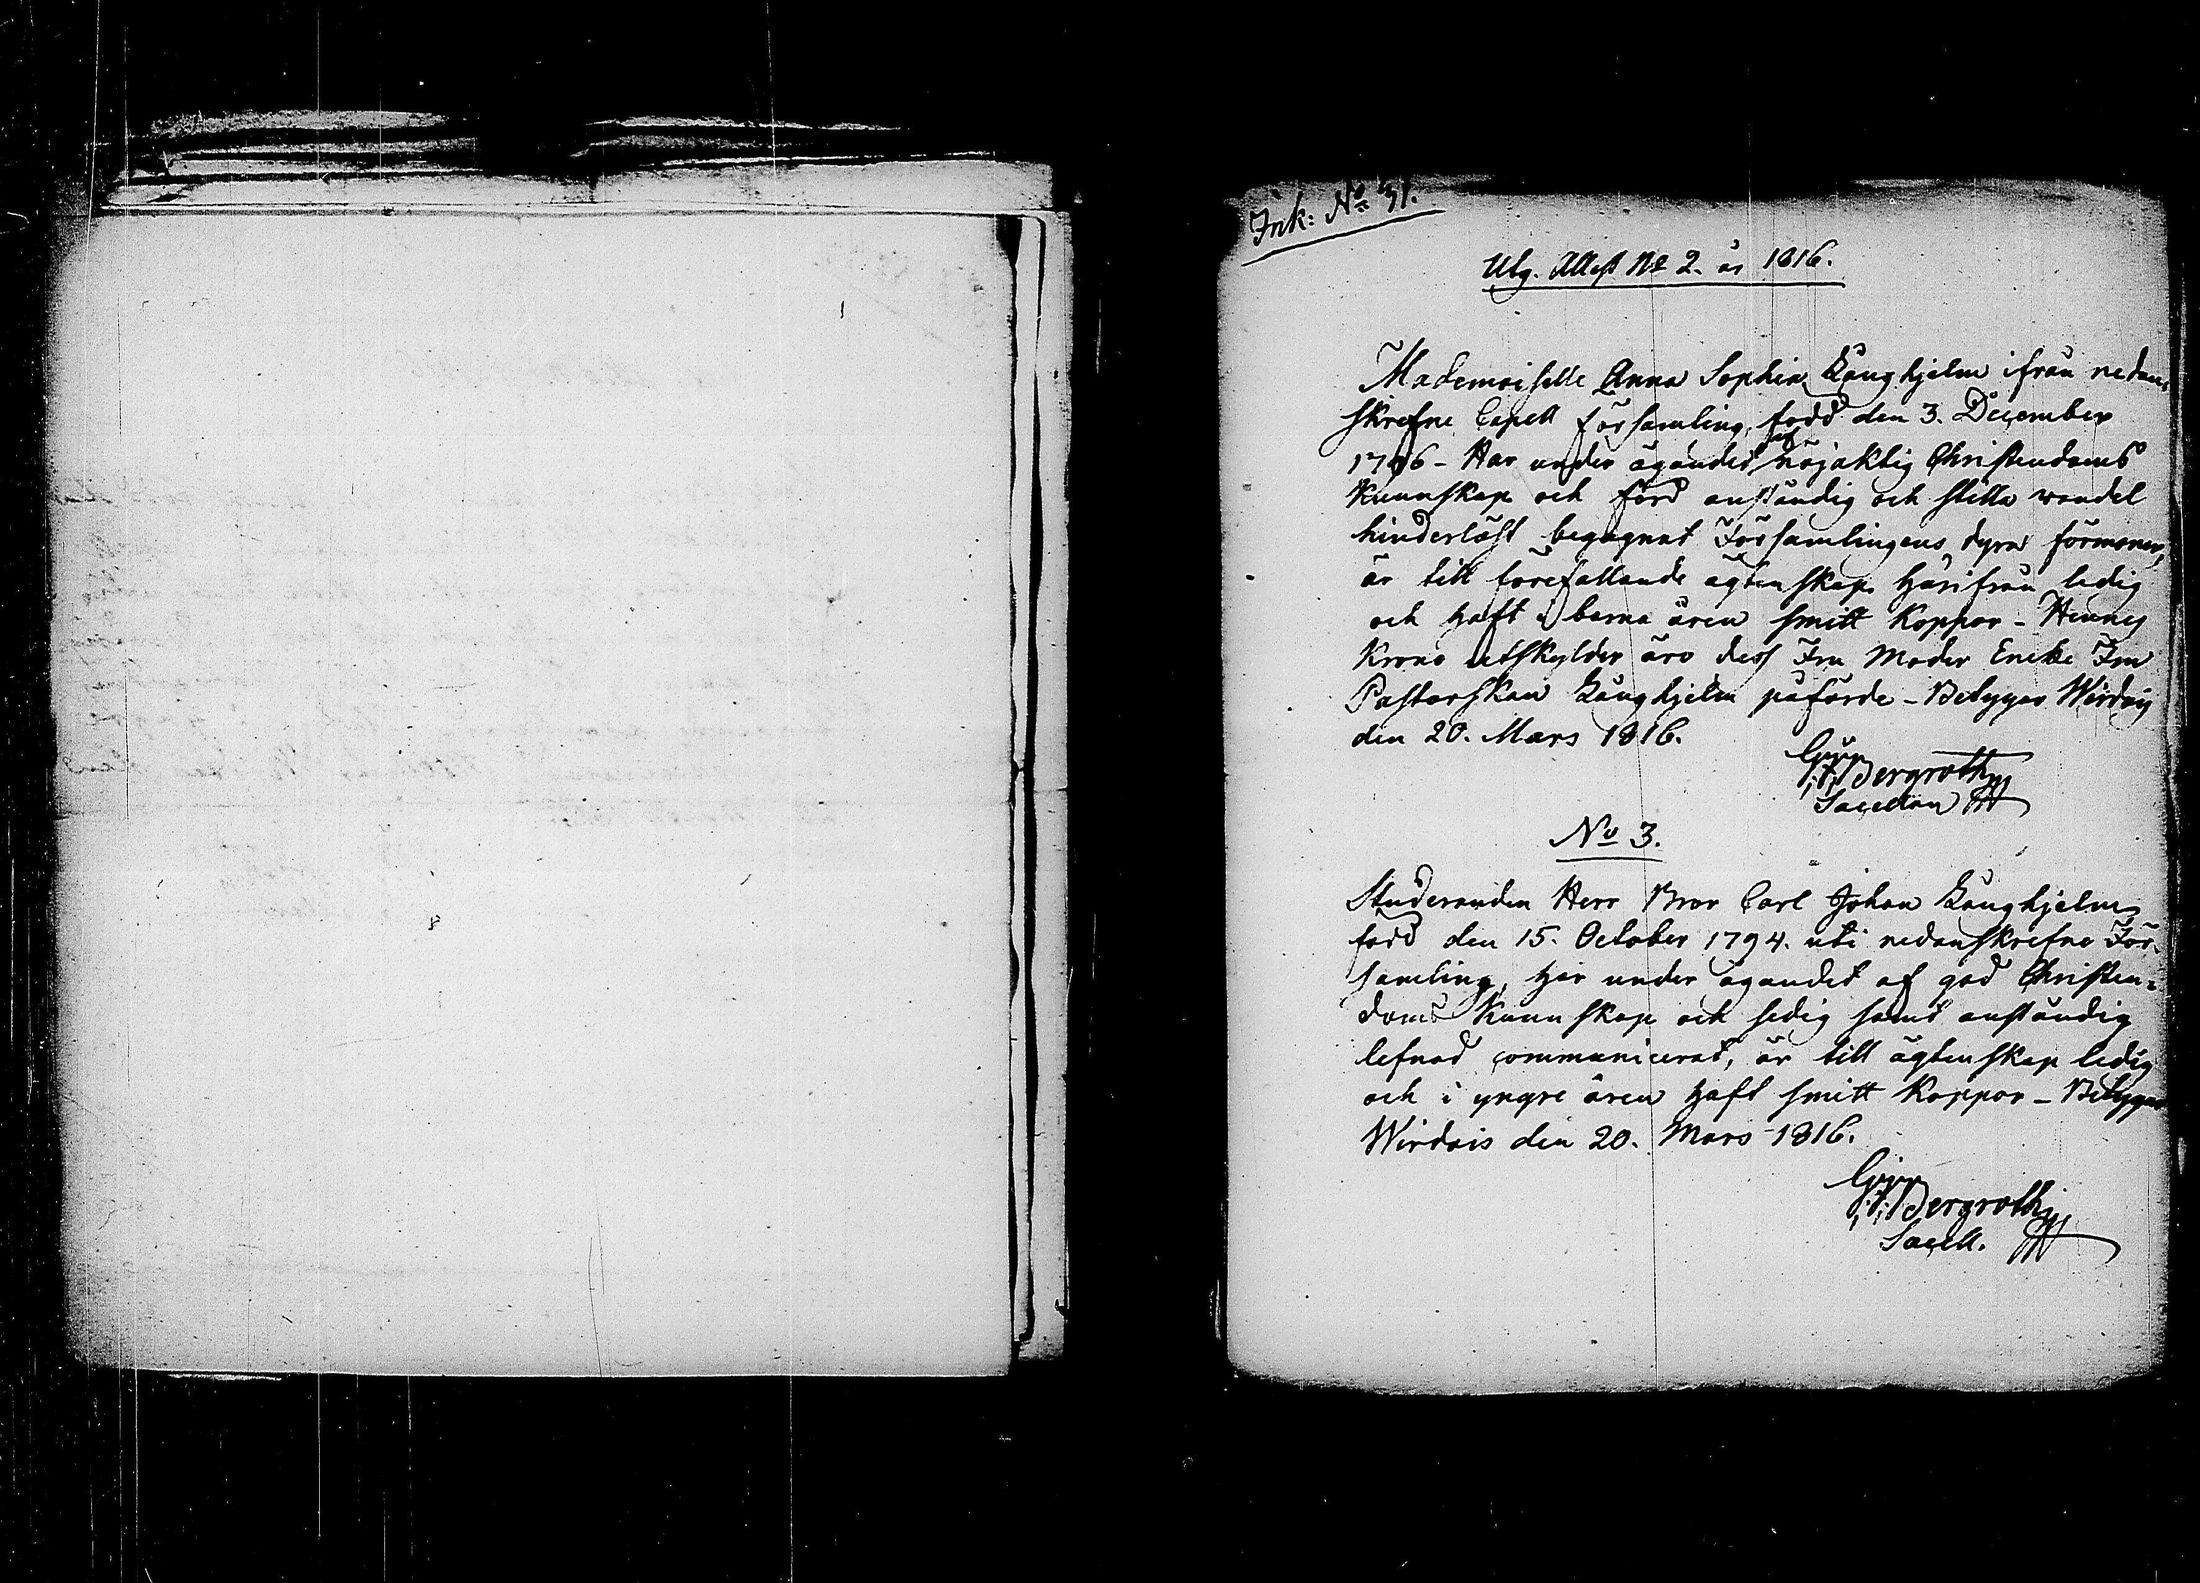 Ink: No 31.
Utg. Attest No 2. år 1816.
Mademoiselle Anna Sophia Långhjelm ifrån nedan-
skrefne Capell församling, född den 3. December
1796 - Har under ägandet af nöjaktig Christendoms
Kunnskap och förd anständig och stilla wandel
hinderlöst begagnat Församlingens dyra förmoner,
är till förefallande ägtenskap härifrån ledig
och haft i barna åren smitt Koppor - Hennes
Krono utskylder äro dess Fru Moder Encke Fru
Pastorskan Långhjelm påförde - Betygar Wirdois
den 20. Mars 1816.
Bergroth
Sacellan
No 3.
Studeranden Herr Bror Carl Johan Långhjelm
född den 15. October 1794. uti nedanskrefne För-
samling, har under ägandet af god Christen-
doms Kunnskap och sedig samt anständig
lefnad communicerat, är till ägtenskap ledig
och i yngre åren haft smitt Koppor - Betygar
Wirdois den 20. Mars 1816.
Bergroth
Sacell.